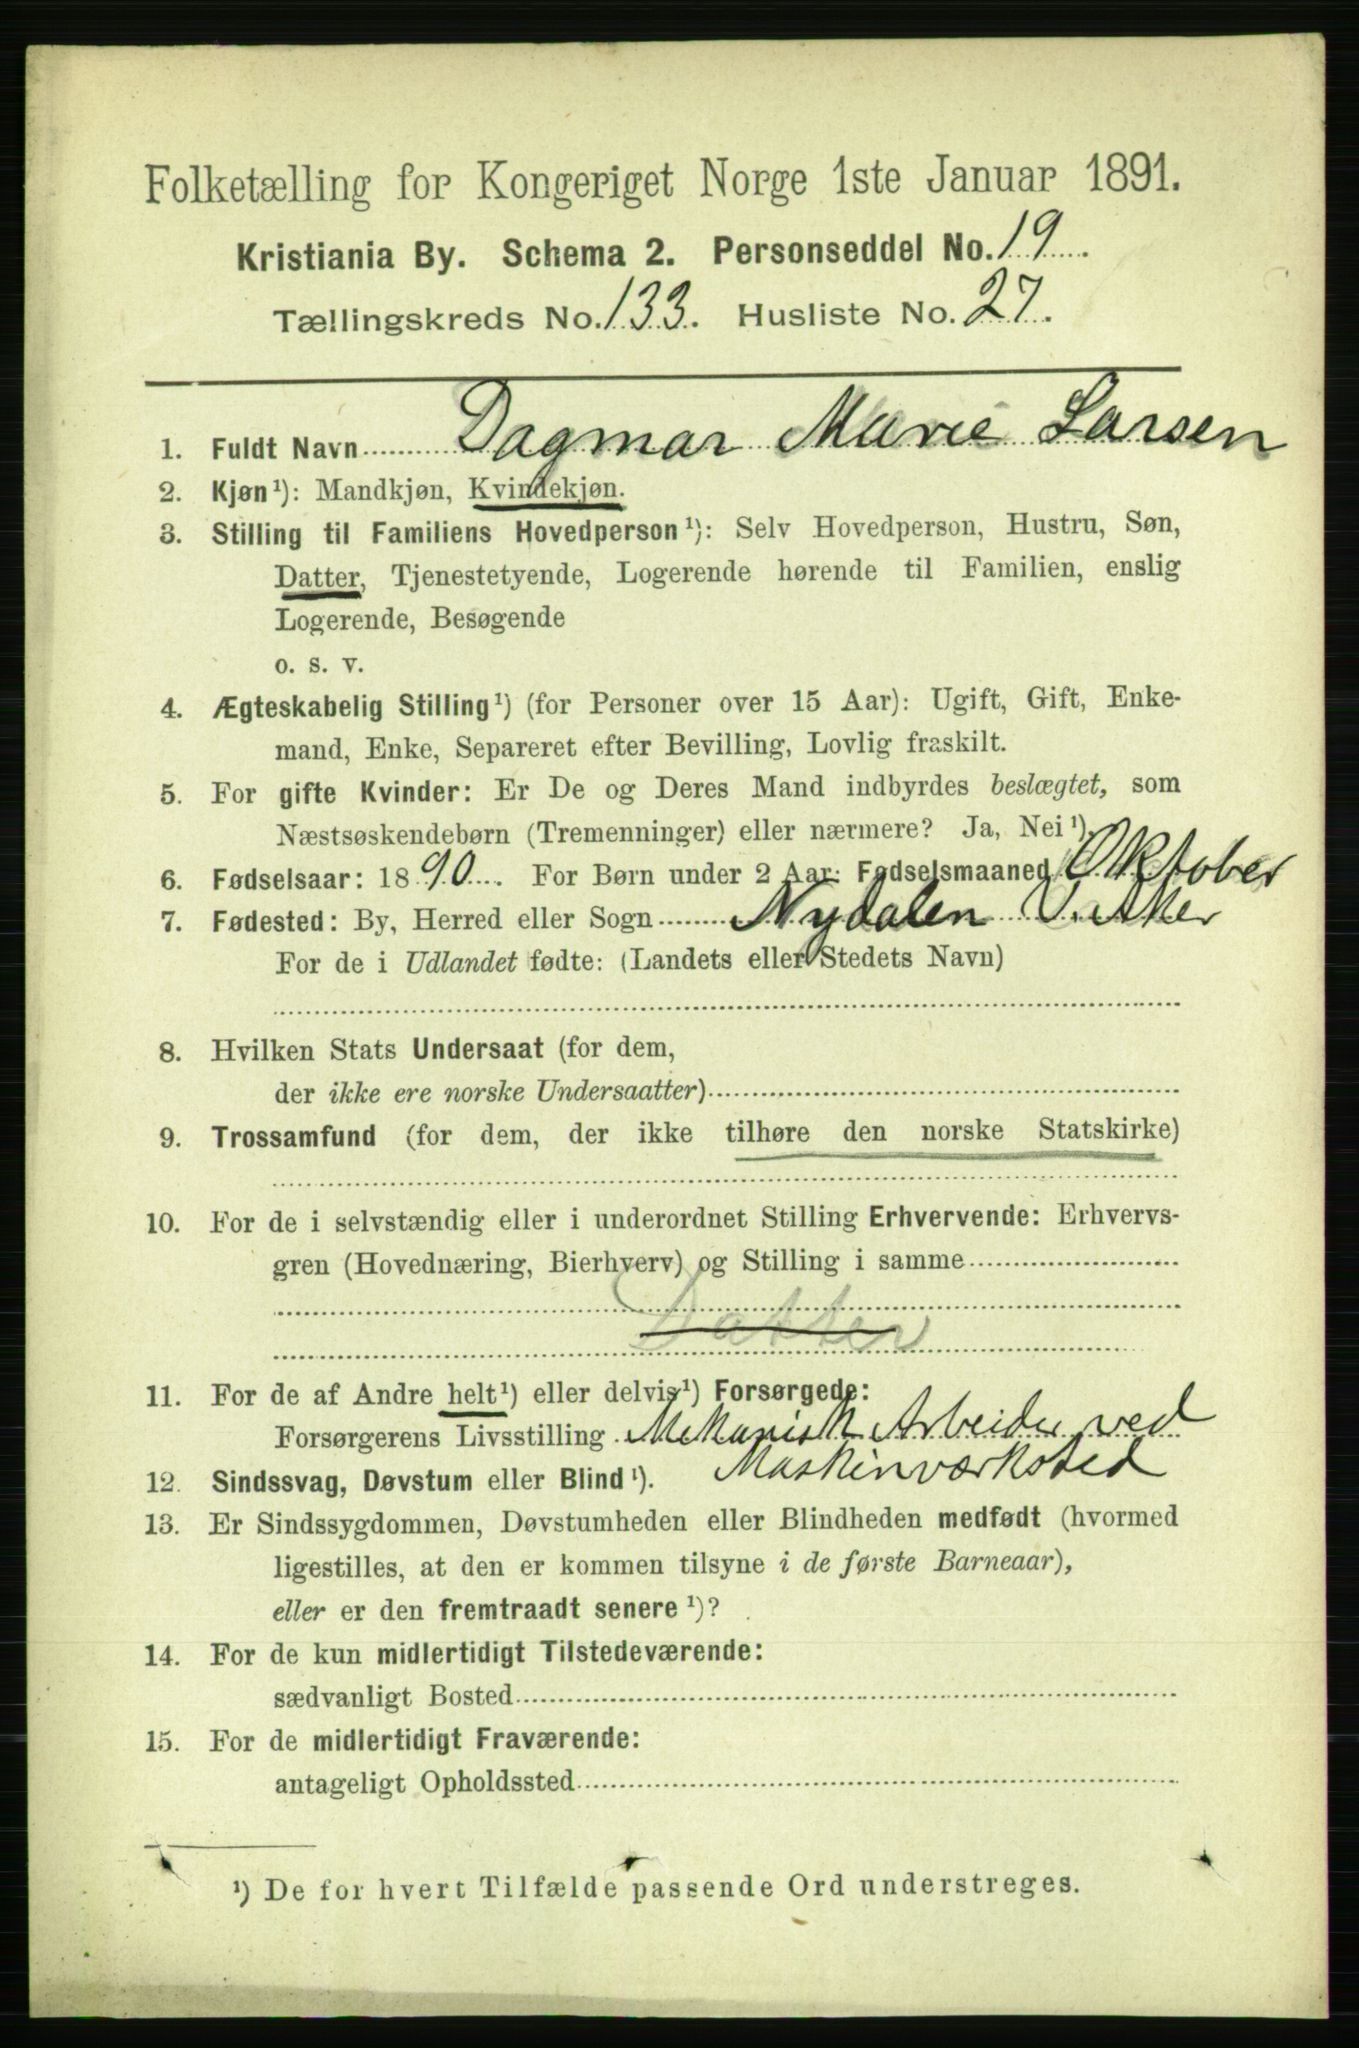 Folketælling for Kongeriget Norge 1ste Januar 1891.
Kristiania By. Schema 2. Personseddel No. 19
Tællingskreds No. 133. Husliste No. 27.
1. Fuldt Navn Dagmar Marie Larsen
2. Kjøn¹): Mandkjøn, Kvindekjøn.
3. Stilling til Familiens Hovedperson¹): Selv Hovedperson, Hustru, Søn,
Datter, Tjenestetyende, Logerende hørende til Familien, enslig
Logerende, Besøgende
o. s. v.
4. Ægteskabelig Stilling¹) (for Personer over 15 Aar): Ugift, Gift, Enke-
mand, Enke, Separeret efter Bevilling, Lovlig fraskilt.
5. For gifte Kvinder: Er De og Deres Mand indbyrdes beslægtet, som
Næstsøskendebørn (Tremenninger) eller nærmere? Ja, Nei¹).
6. Fødselsaar: 1890. For Børn under 2 Aar: Fødselsmaaned Oktober
7. Fødested: By, Herred eller Sogn Nydalen V. Aker
For de i Udlandet fødte: (Landets eller Stedets Navn)
8. Hvilken Stats Undersaat (for dem,
der ikke ere norske Undersaatter)
9. Trossamfund (for dem, der ikke tilhøre den norske Statskirke)
10. For de i selvstændig eller i underordnet Stilling Erhvervende: Erhvervs-
gren (Hovednæring, Bierhverv) og Stilling i samme
Datter
11. For de af Andre helt¹) eller delvis¹) Forsørgede:
Forsørgerens Livsstilling Mekanisk Arbeider ved
Maskinværksted
12. Sindssvag, Døvstum eller Blind¹).
13. Er Sindssygdommen, Døvstumheden eller Blindheden medfødt (hvormed
ligestilles, at den er kommen tilsyne i de første Barneaar),
eller er den fremtraadt senere¹)?
14. For de kun midlertidigt Tilstedeværende:
sædvanligt Bosted
15. For de midlertidigt Fraværende:
antageligt Opholdssted
¹) De for hvert Tilfælde passende Ord understreges.